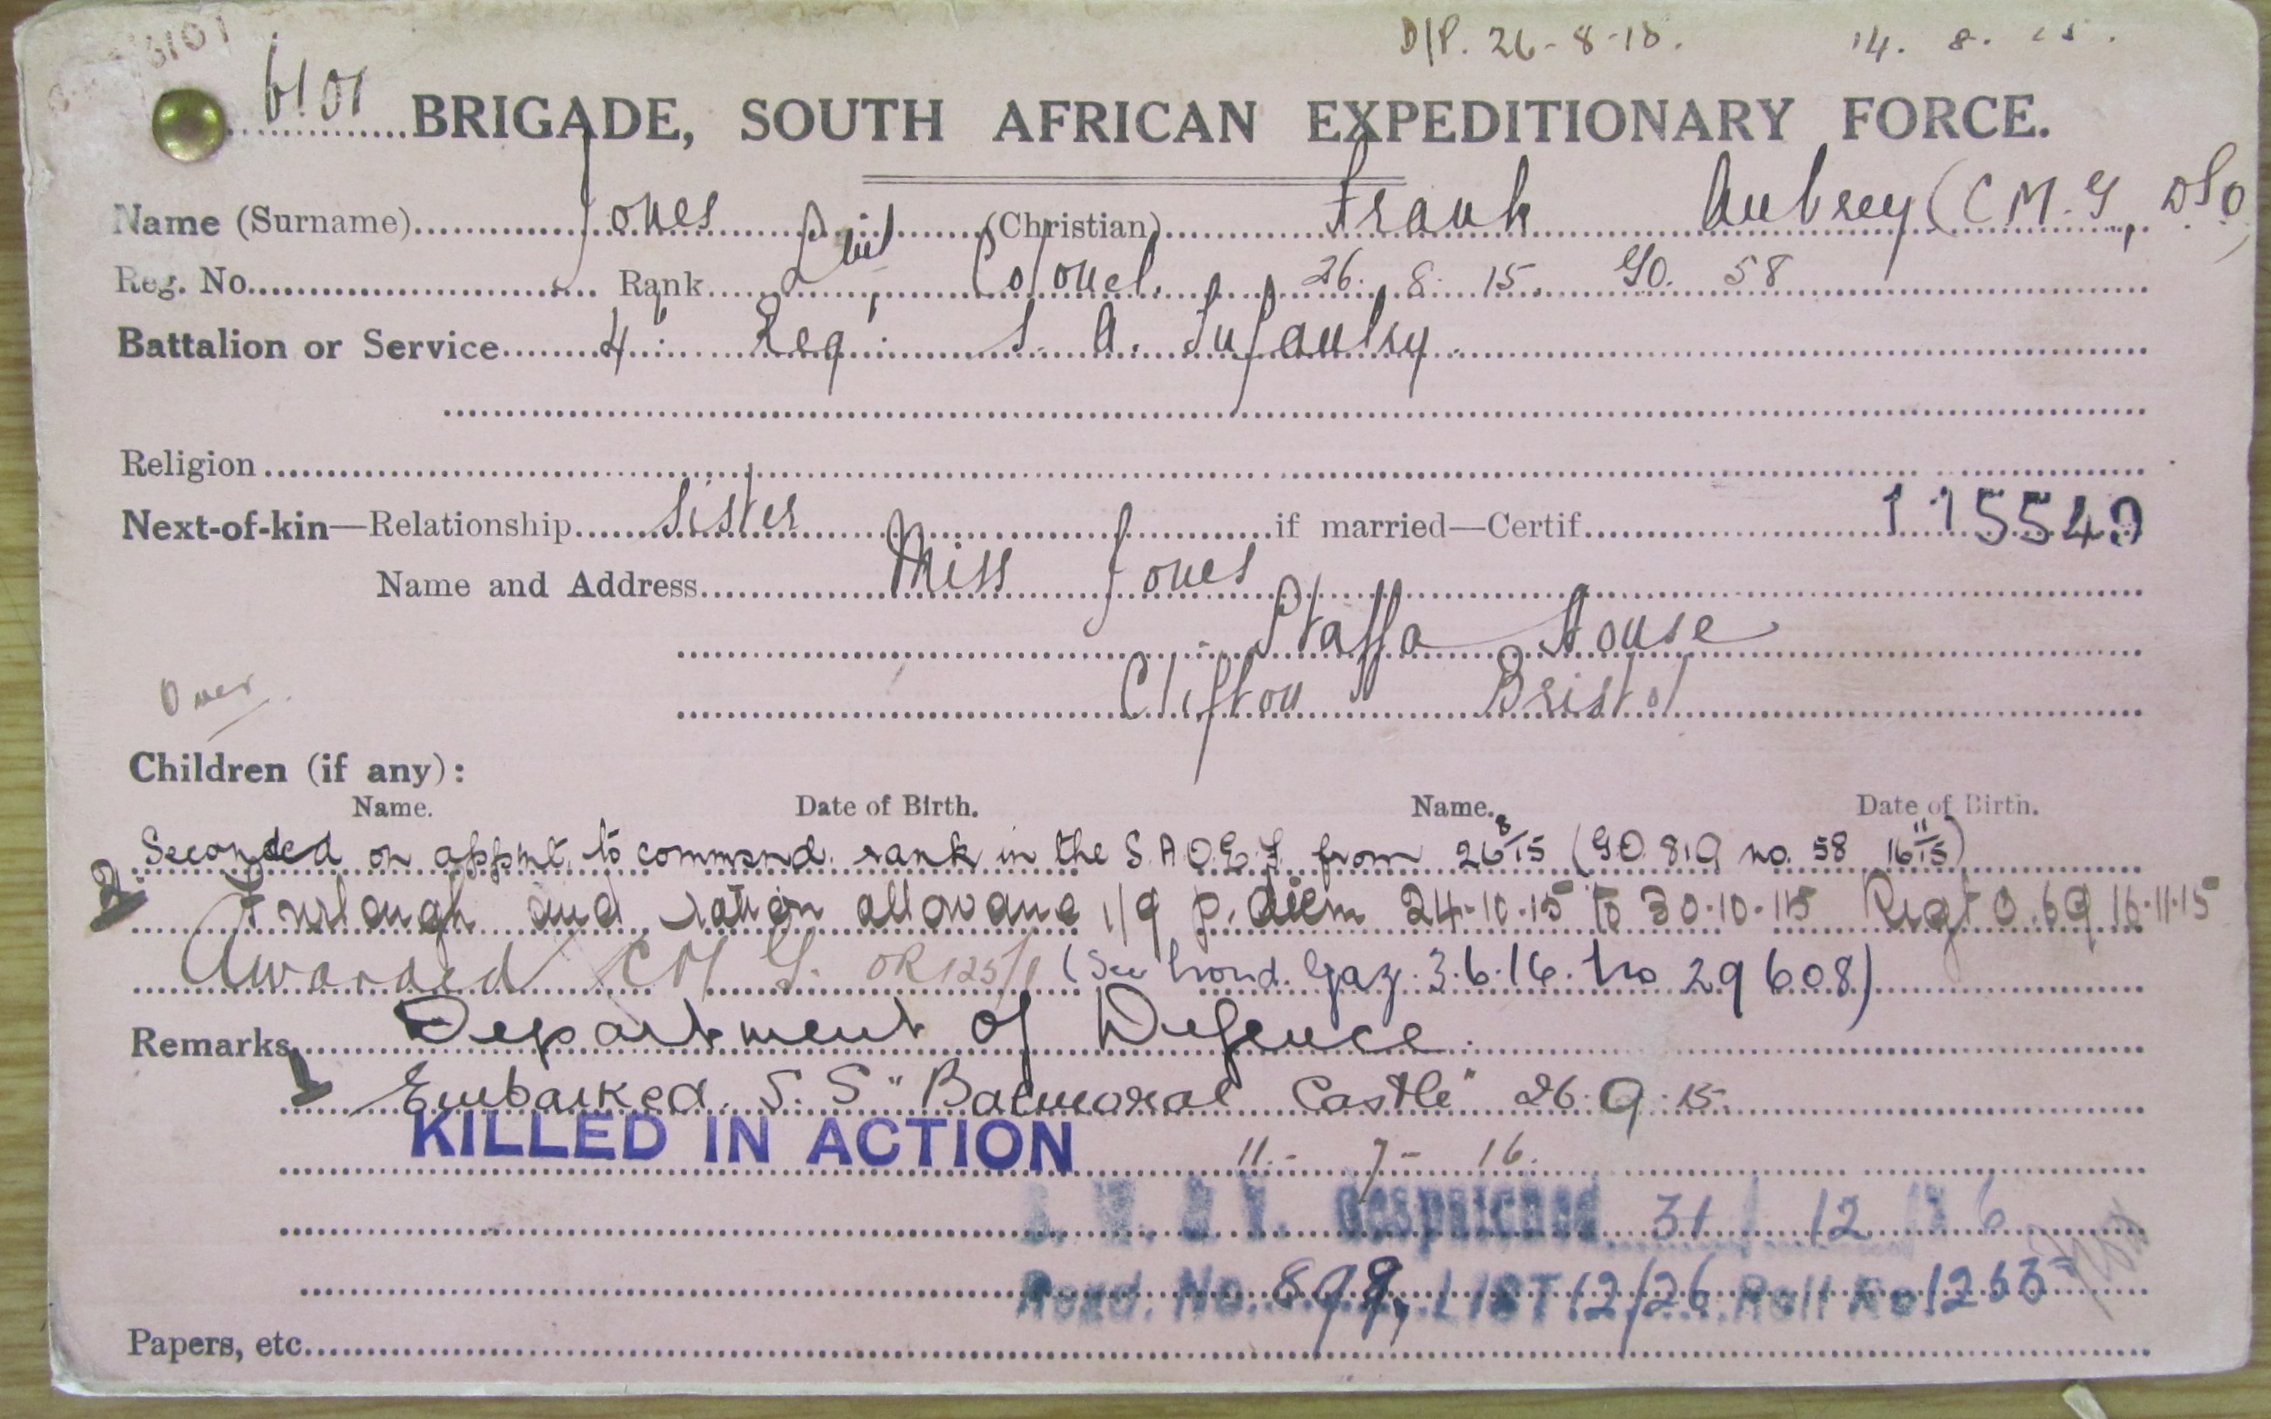 D/P. 26-8-15. 14. 8. 15.
6101 BRIGADE, SOUTH AFRICAN EXPEDITIONARY FORCE.
Name (Surname) Jones (Christian) Frank Aubrey (C M. G., D S O)
Reg. No. Rank Lieut Colonel. 26. 8. 15. GO. 58
Battalion or Service 4th Reg't S. A. Infantry
Religion
Next-of-kin—Relationship Sister if married—Certif. 115549
Name and Address Miss Jones
Staffa House
Clifton Bristol
Over
Children (if any):
Name. Date of Birth. Name. Date of Birth.
Seconded on appmt. to command. rank in the S A O. E F from 26 8/15 (GO 819 no. 58 16 11/15)
2 Furlough and ration allowance 1/9 p. diem 24-10-15 to 30-10-15 Regt O. 69 16-11-15
Awarded C M G. OR125/1 (See Lond. Gaz. 3.6.16. No 29608)
Remarks Department of Defence.
1 Embarked S. S "Balmoral Castle" 26.9.15.
KILLED IN ACTION 11 - 7 - 16.
B. W. & V. despatched 31 12
No. 898, LIST 12/26 Roll No 1263
Papers, etc.